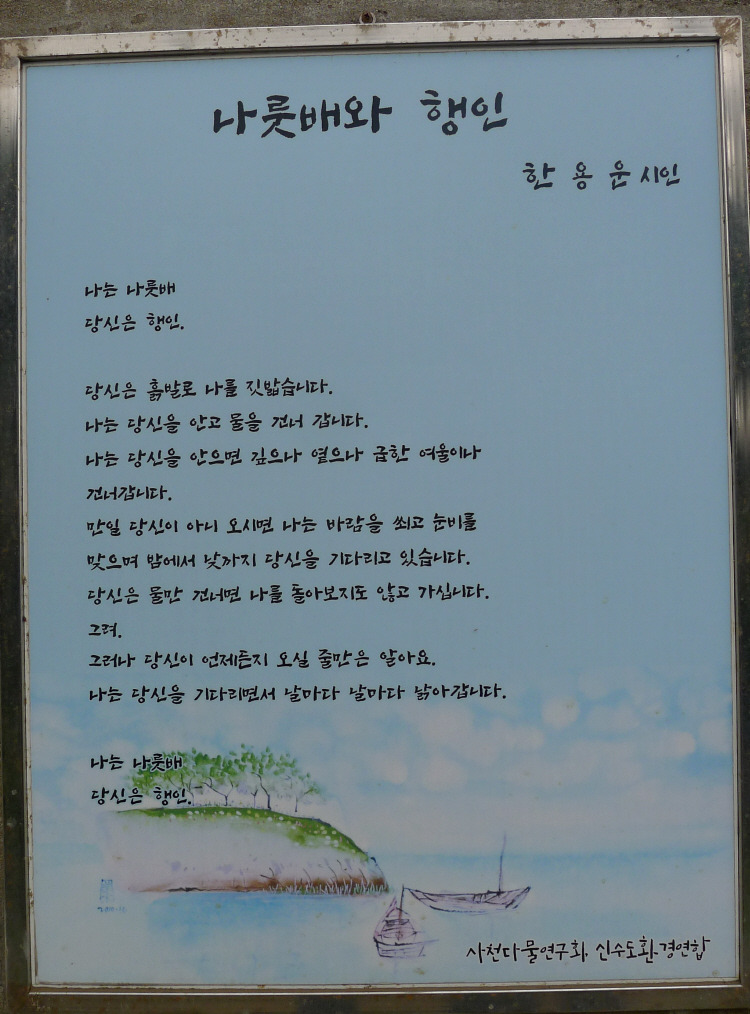 나룻배와 행인
한 용 운 시인
나는 나룻배
당신은 행인.
당신은 흙발로 나를 짓밟습니다.
나는 당신을 안고 물을 건너 갑니다.
나는 당신을 안으면 깊으나 옅으나 급한 여울이나
건너갑니다.
만일 당신이 아니 오시면 나는 바람을 쐬고 눈비를
맞으며 밤에서 낮까지 당신을 기다리고 있습니다.
당신은 물만 건너면 나를 돌아보지도 않고 가십니다.
그려.
그러나 당신이 언제든지 오실 줄만은 알아요.
나는 당신을 기다리면서 날마다 날마다 낡아갑니다.
나는 나룻배
당신은 행인.
사천다물연구회, 신수도환경연합